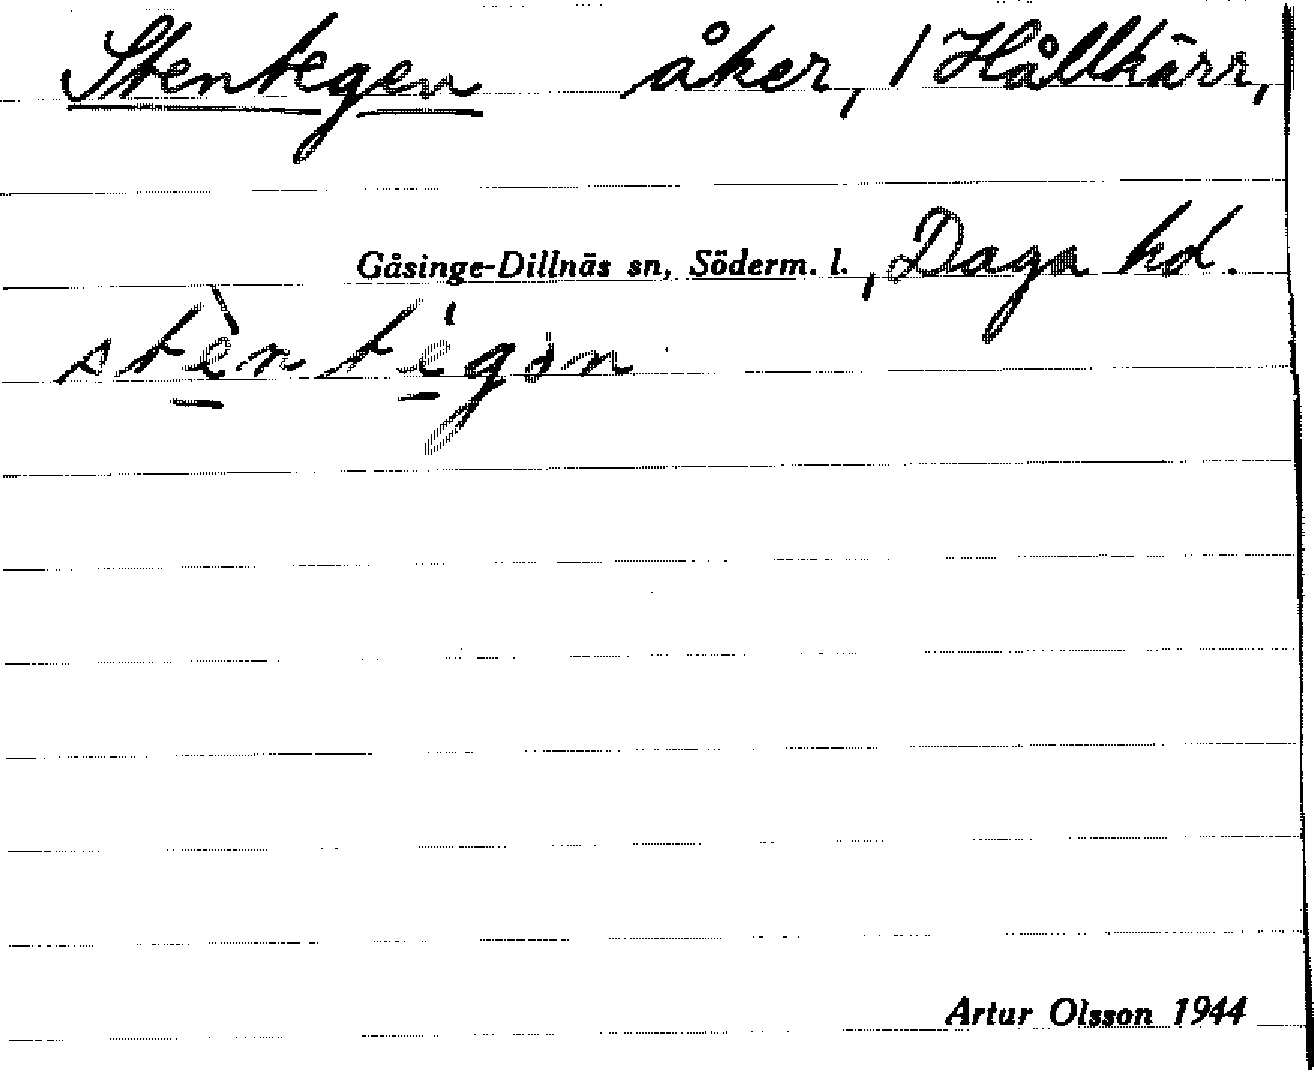 Stentegen åker, / Hållkärr,
Gåsinge-Dillnäs sn, Söderm. l., Daga hd.
stèntegən
Artur Olsson 1944